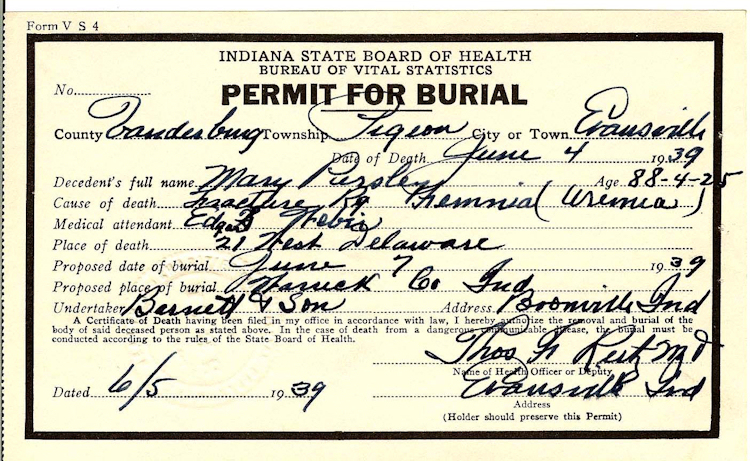 Form V S 4
INDIANA STATE BOARD OF HEALTH
BUREAU OF VITAL STATISTICS
No.
PERMIT FOR BURIAL
County Vanderburg Township Pigeon City or Town Evansville
Date of Death June 4 1939
Decedent's full name Mary Pursley Age 88-4-25
Cause of death Fracture Rg (Uremia)
Medical attendant Edgar
Place of death 21 West Delaware
Proposed date of burial June 7 1939
Proposed place of burial Warrick Co Ind
Undertaker Barnett & Son Address Boonville Ind
A Certificate of Death having been filed in my office in accordance with law, I hereby authorize the removal and burial of the
body of said deceased person as stated above. In the case of death from a dangerous communicable disease, the burial must be
conducted according to the rules of the State Board of Health.
Thos MD
Name of Health Officer or Deputy
Dated 6/5 1939 Evansville Ind
Address
(Holder should preserve this Permit)